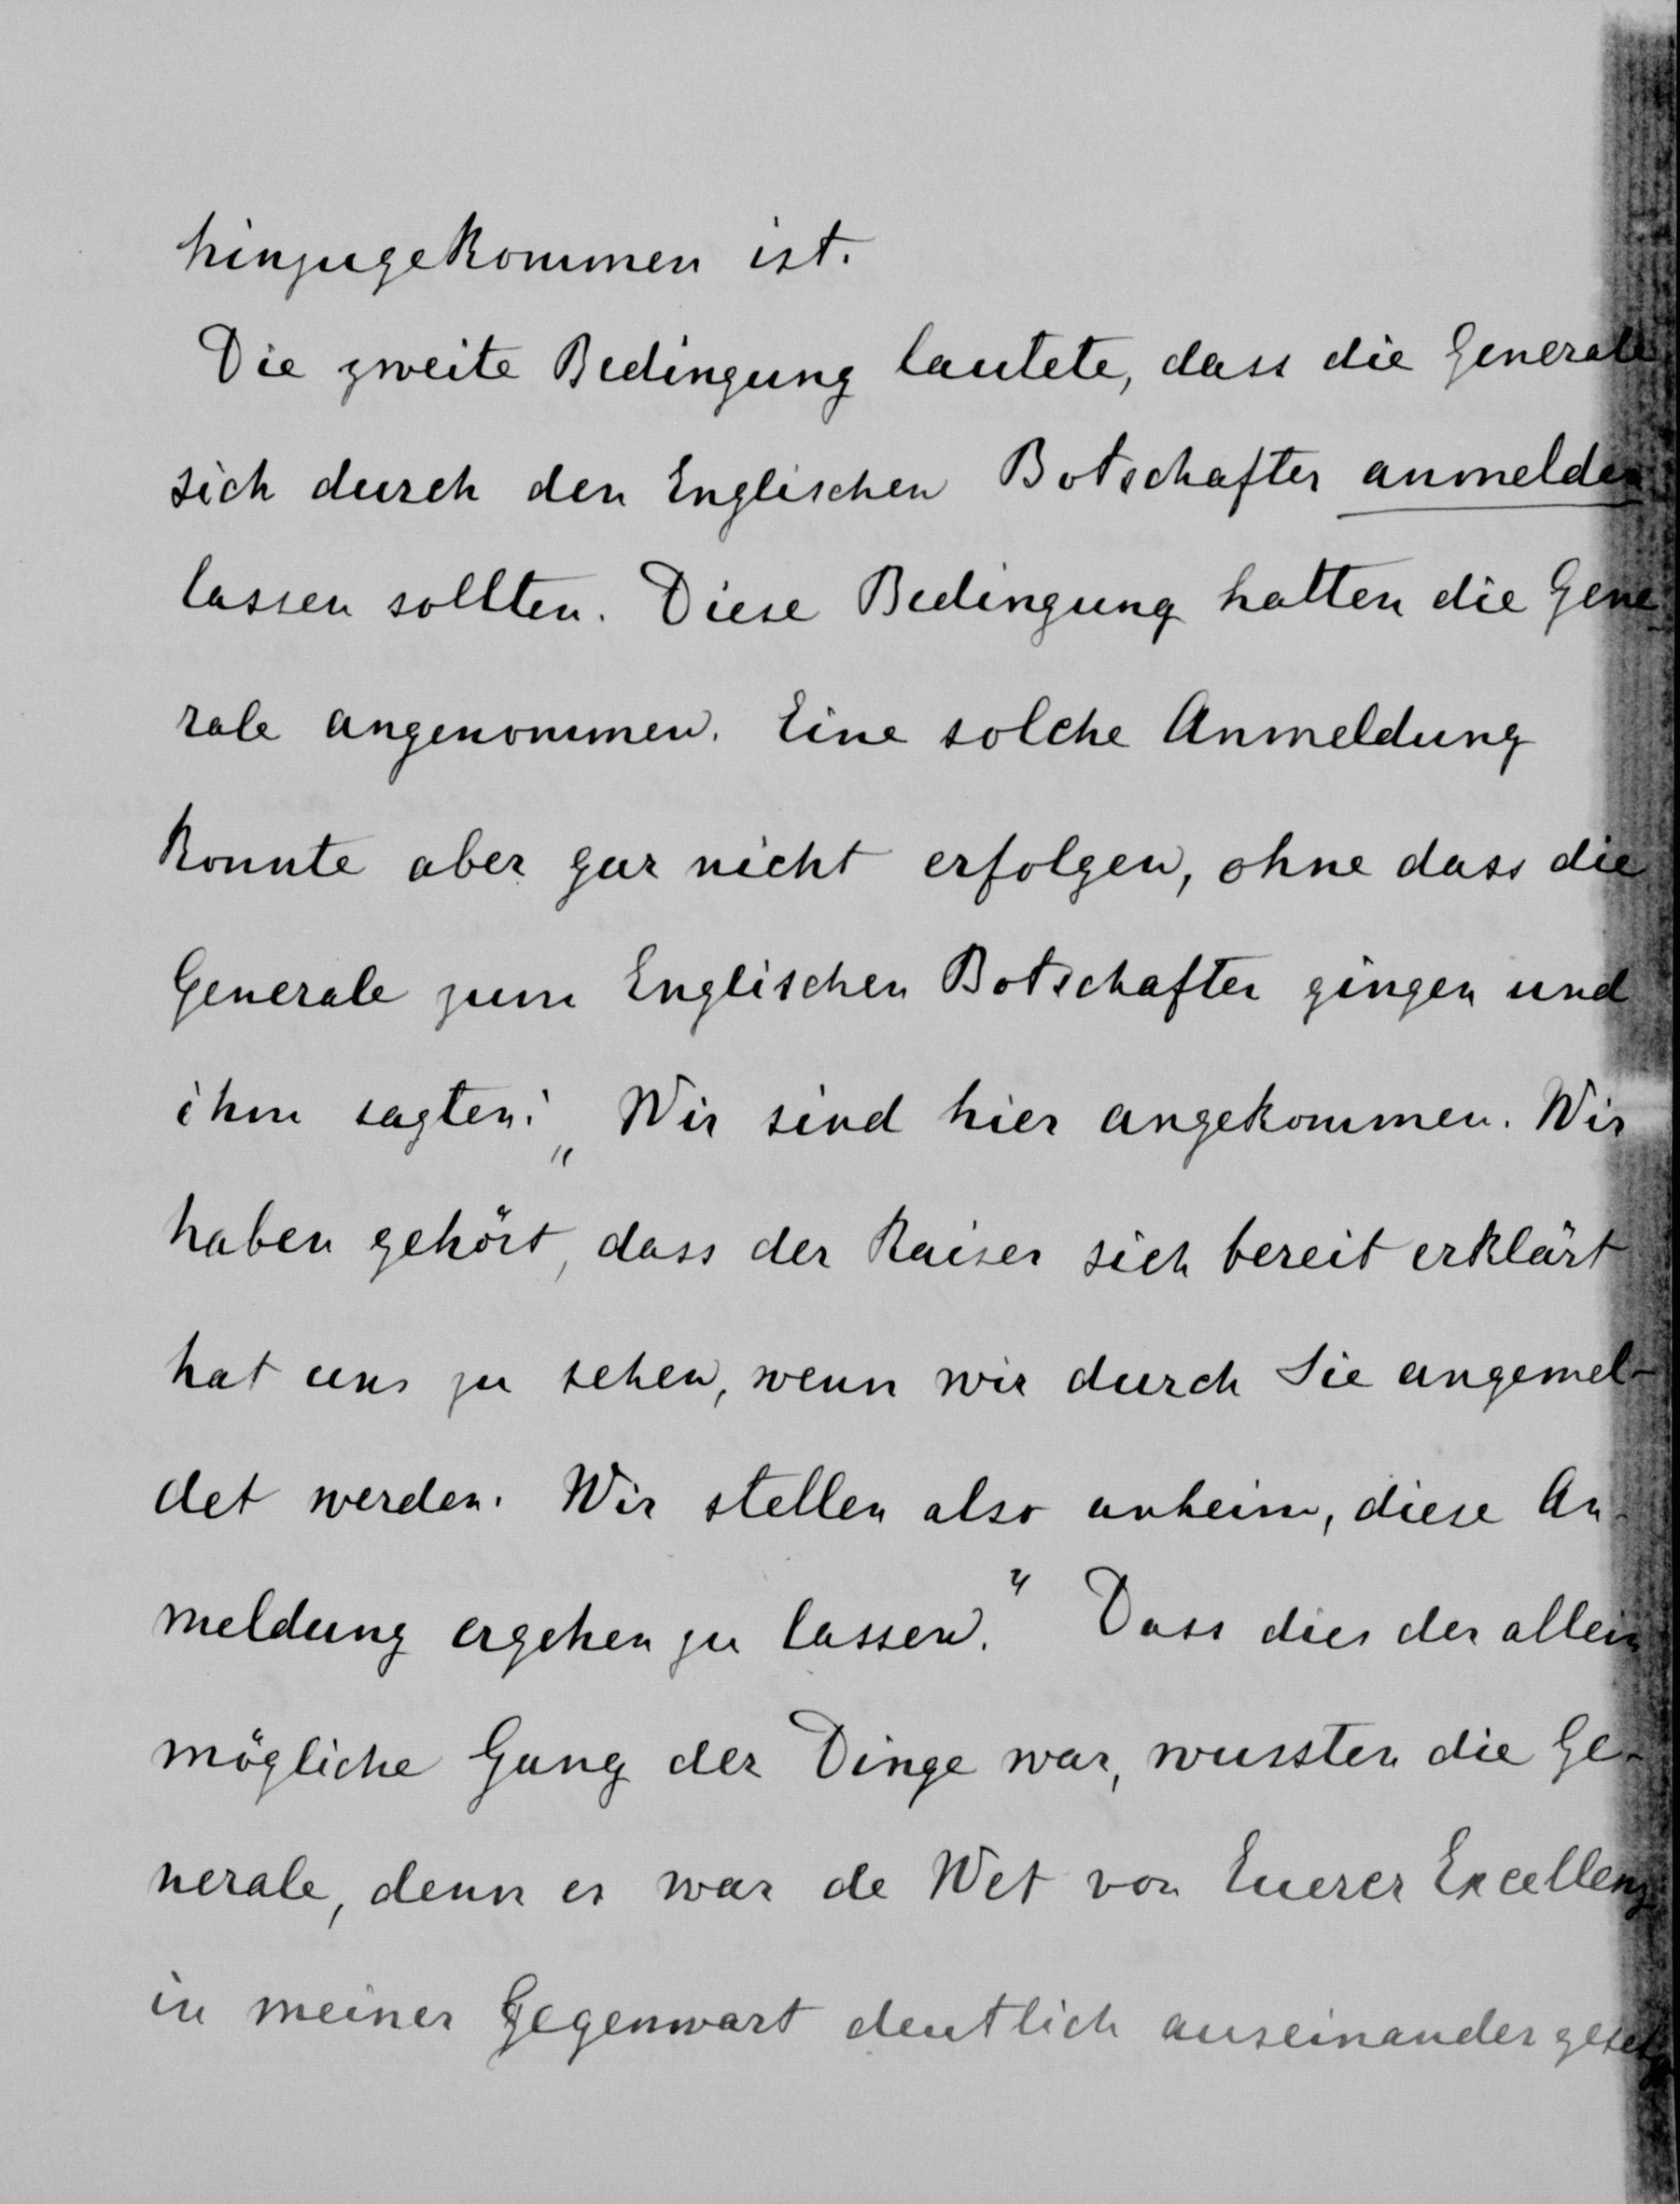 hinzugekommen ist.
Die zweite Bedingung lautete, dass die Generale
sich durch den Englischen Botschafter anmelden
lassen sollten. Diese Bedingung hatten die Gene-
rale angenommen. Eine solche Anmeldung
konnte aber gar nicht erfolgen, ohne dass die
Generale zum Englischen Botschafter gingen und
ihm sagten: „Wir sind hier angekommen. Wir
haben gehört, dass der Kaiser sich bereit erklärt
hat uns zu sehen, wenn wir durch Sie angemel-
det werden. Wir stellen also anheim, diese An-
meldung ergehen zu lassen." Dass dies der allein
mögliche Gang der Dinge war, wussten die Ge-
nerale, denn es war de Wet von Euerer Excellenz
in meiner Gegenwart deutlich auseinandergesetz